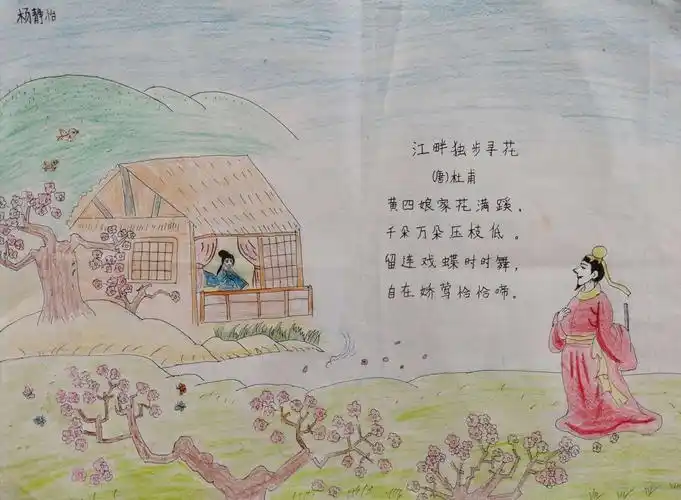 杨静怡
江畔独步寻花
(唐)杜甫
黄四娘家花满蹊,
千朵万朵压枝低。
留连戏蝶时时舞,
自在娇莺恰恰啼。